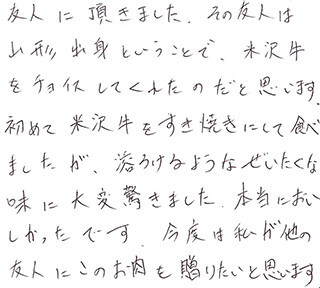 友人に頂きました。その友人は
山形出身ということで、米沢牛
をチョイスしてくれたのだと思います。
初めて米沢牛をすき焼きにして食べ
ましたが、溶ろけるようなぜいたくな
味に大変驚きました。本当においし
しかったです。今度は私が他の
友人にこのお肉を贈りたいと思います